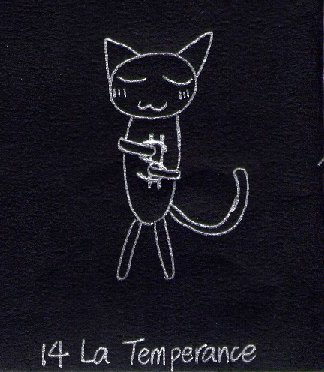 14 La Temperance